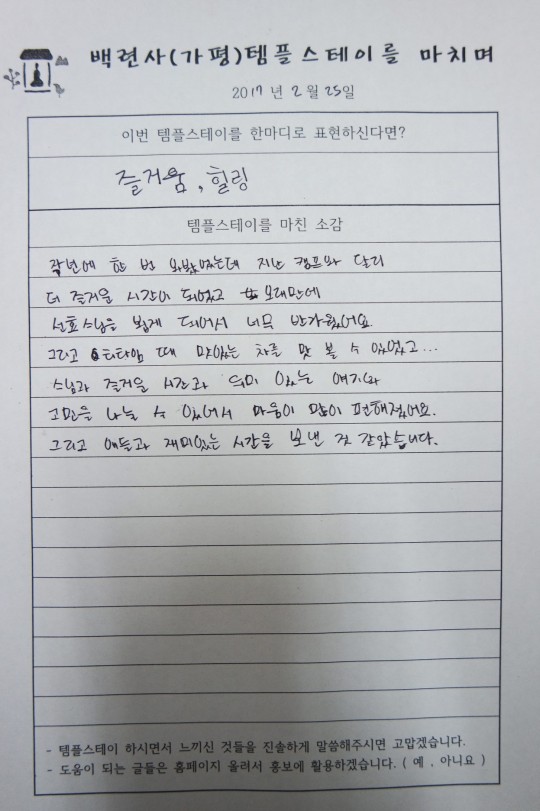 백련사(가평)템플스테이를 마치며
2017년 2월 25일
이번 템플스테이를 한마디로 표현하신다면?
즐거움, 힐링
템플스테이를 마친 소감
작년에 한 번 와봤었는데 지난 캠프와 달리
더 즐거운 시간이 되었고 오래만에
선효스님을 뵙게 되어서 너무 반가웠어요.
그리고 티타임 때 맛있는 차를 맛 볼 수 있었고...
스님과 즐거운 시간과 의미 있는 얘기와
고민을 나눌 수 있어서 마음이 많이 편해졌어요.
그리고 애들과 재미있는 시간을 보낸 것 같았습니다.
- 템플스테이 하시면서 느끼신 것들을 진솔하게 말씀해주시면 고맙겠습니다.
- 도움이 되는 글들은 홈페이지 올려서 홍보에 활용하겠습니다. ( 예 , 아니요 )